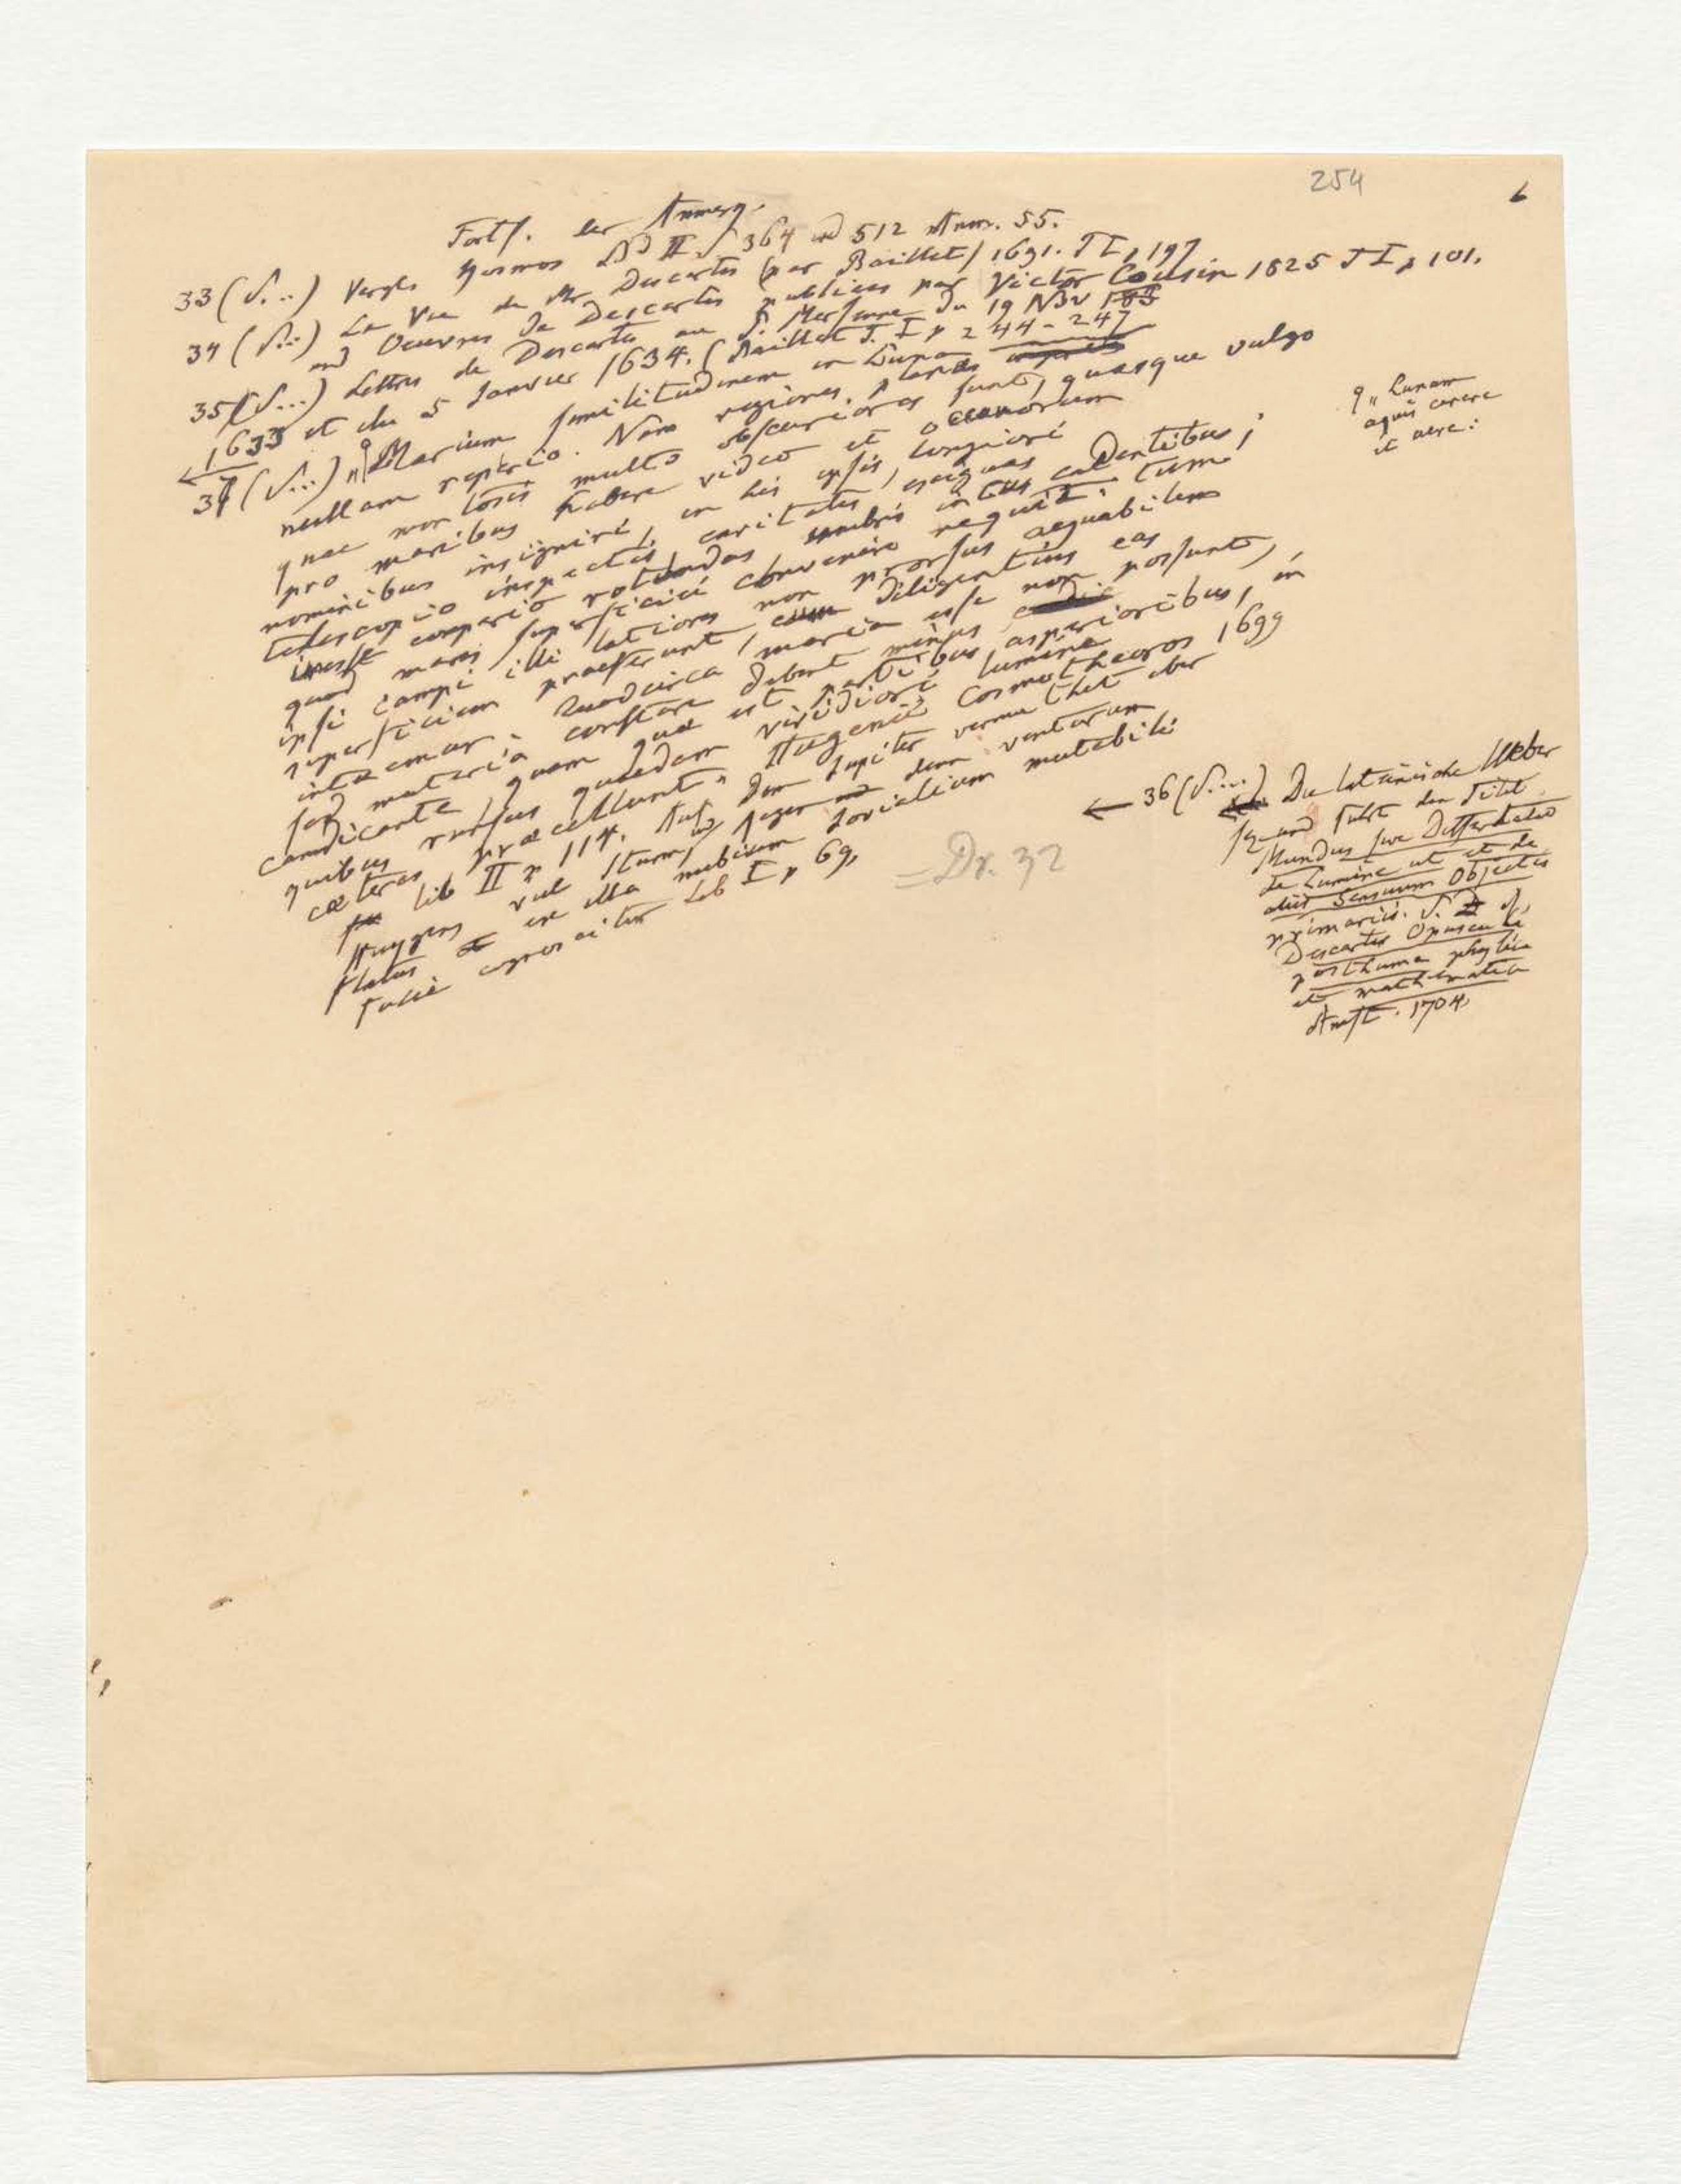 254
6
Fortf. der Anmerg.
33 (S...) Vergl. Kosmos Bd II S 364 und 512 Anm. 55.
34 (S...) La Vie de Mr Descartes (par Baillet) 1691. T I p 197
und Oeuvres de Descartes publiées par Victor Cousin 1825 T I p 101.
35 (S...) Lettres de Descartes au P. Mersenne du 19 Nov
1633 et du 5 Janvier 1634. (Baillet T. I p 244-247
37 (S...) „ Marium similitudinem in Luna
nullam reperio. Nam regiones planas
quae montosis multo obscuriores sunt, quasque vulgo
pro maribus haberi video et oceanorum
nominibus insigniri, in his ipsis, longiori
telescopio inspectis, cavitates exiguas
inesse comperio rotundas umbris intus cadentibus;
quod maris superficiei convenire nequit: tum
ipsi campi illi latiores non prorsus aequabilem
superficiem praeferunt, cum diligentius eas
intuemur. Quodcirca maria esse non possunt,
sed materia constare debent minus
candicante, quam quae est partibus asperioribus, in
quibus rursus quaedam viridiori lumine
caeteras praecellunt„ Hugenii Cosmotheoros 1699
lib II p 114. Auf dem Jupiter vermuthet aber
Huygens viel Sturm und Regen denn ventorum
flatus ex illa nubium Iovialium mutabili
facie cognoscitur Lib I p 69.
= Dr. 32
„ Lunam
aquis carere
et aere:
← 36 (S...) Die lateinische Ueber
sezung führt den Titel
Mundus sive Dissertatio
de Lumine ut et de
aliis Sensuum Objectis
primariis. S.
Descartes Opuscula
posthuma physica
et mathematica
Amst. 1704